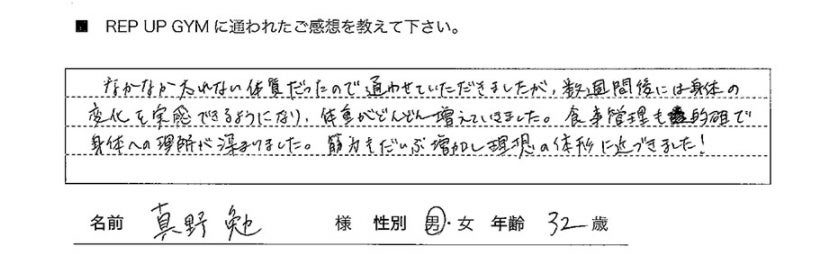 ■ REP UP GYMに通われたご感想を教えて下さい。
なかなか太れない体質だったので通わせていただきましたが、数週間後には身体の
変化を実感できるようになり、体重がどんどん増えていきました。食事管理も的確で
身体への理解が深まりました。筋力もだいぶ増加し理想の体形に近づきました!
名前 真野 勉 様 性別 男・女 年齢 32歳